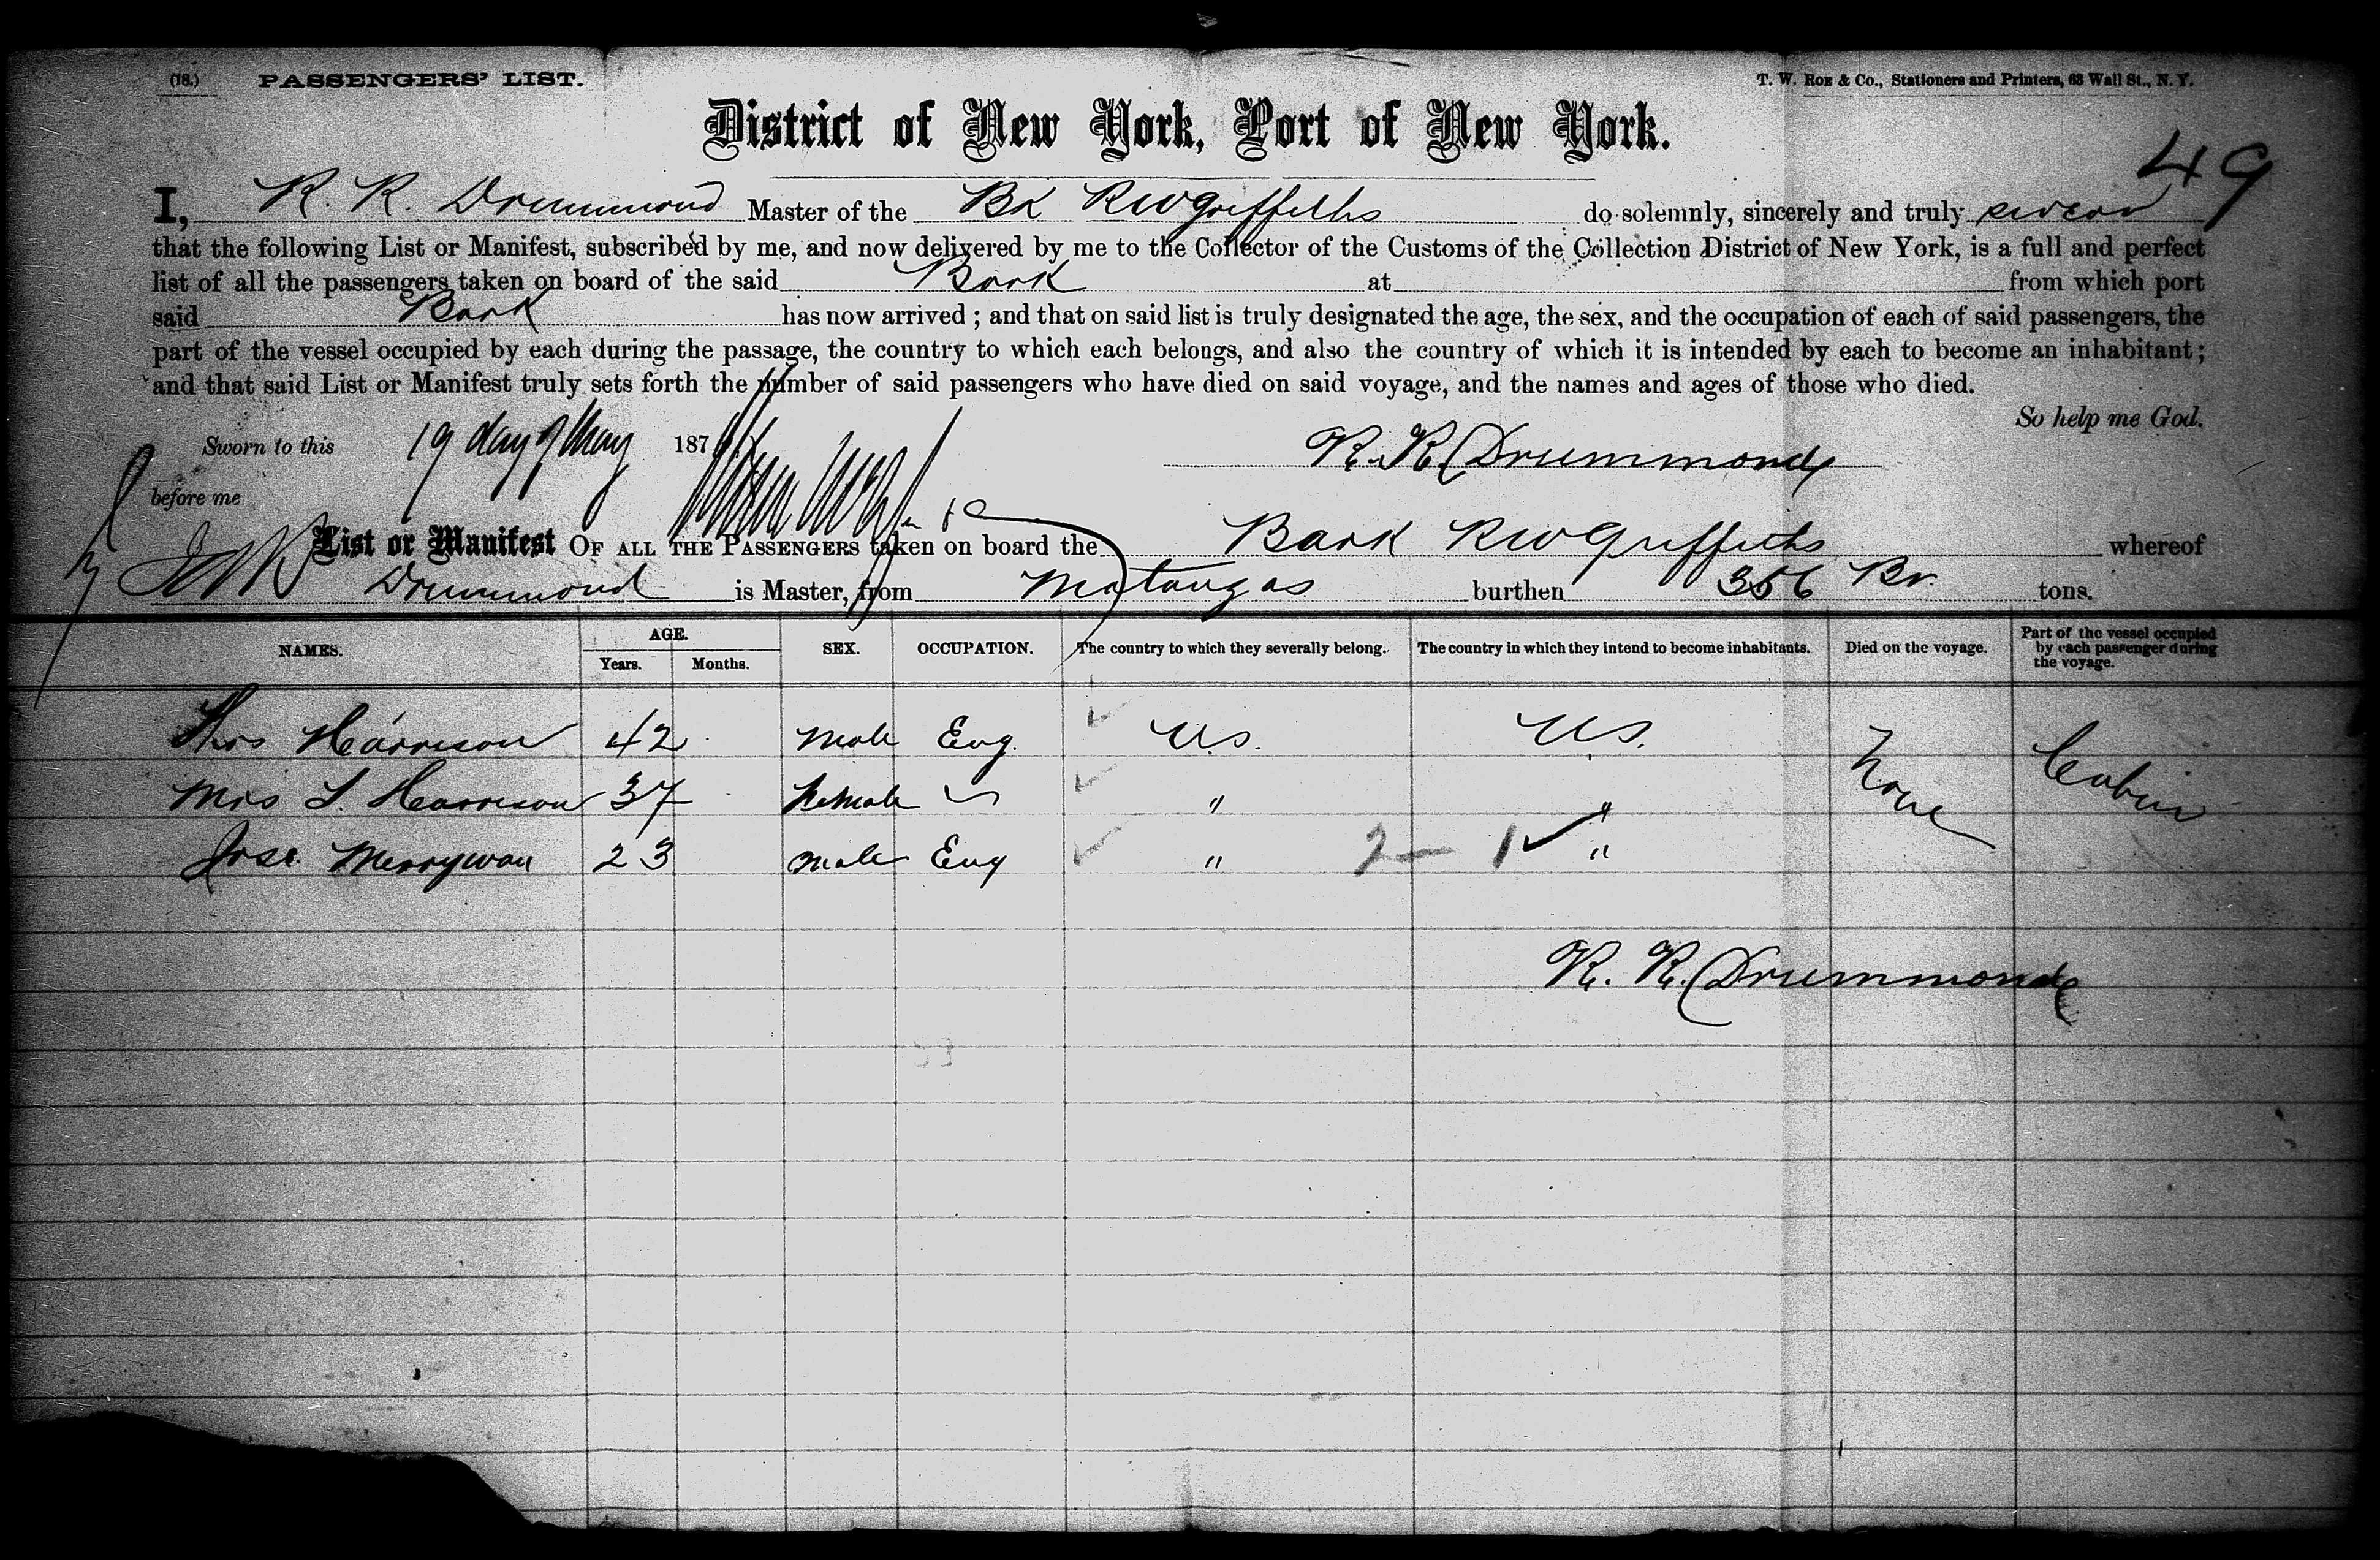 (18.) PASSENGERS' LIST. T. W. ROE & Co., Stationers and Printers, 63 Wall St., N. Y.
District of New York, Port of New York.
49
I, R. R. Drummond Master of the Bk RW Griffiths do solemnly, sincerely and truly swear
that the following List or Manifest, subscribed by me, and now delivered by me to the Collector of the Customs of the Collection District of New York, is a full and perfect
list of all the passengers taken on board of the said Bark at from which port
said Bark has now arrived ; and that on said list is truly designated the age, the sex, and the occupation of each of said passengers, the
part of the vessel occupied by each during the passage, the country to which each belongs, and also the country of which it is intended by each to become an inhabitant ;
and that said List or Manifest truly sets forth the number of said passengers who have died on said voyage, and the names and ages of those who died.
So help me God.
Sworn to this 19 day of May 187 R. R. Drummond
before me
List or Manifest OF ALL THE PASSENGERS taken on board the Bark RW Griffiths whereof
Drummond is Master, from Matanzas burthen 356 Br. tons.
NAMES. AGE. Years. Months. SEX. OCCUPATION. The country to which they severally belong. The country in which they intend to become inhabitants. Died on the voyage. Part of the vessel occupied by each passenger during the voyage.
Thos Harrison 42 Male Eng. U.S. U.S. None Cabin
Mrs L. Harrison 37 Female " "
Jose Merrywan 23 Male Eng " 2 — 1 ✓ "
R. R. Drummond